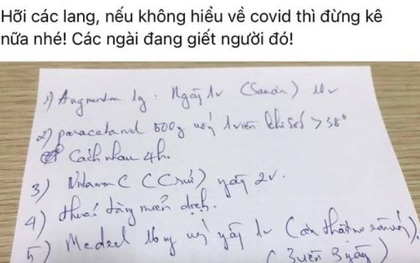 Hỡi các lang, nếu không hiểu về covid thì đừng kê
nữa nhé! Các ngài đang giết người đó!
1) Augmentin 1g. Ngày 1v (Sandoz) 10v
2) paracetamol 500g uống 1 viên khi sốt > 38°
Cách nhau 4h.
3) Vitamin C (C sủi) ngày 2v.
4) thuốc tăng miễn dịch.
5) Medrol 16mg uống ngày 1v
(3 viên 3 ngày)